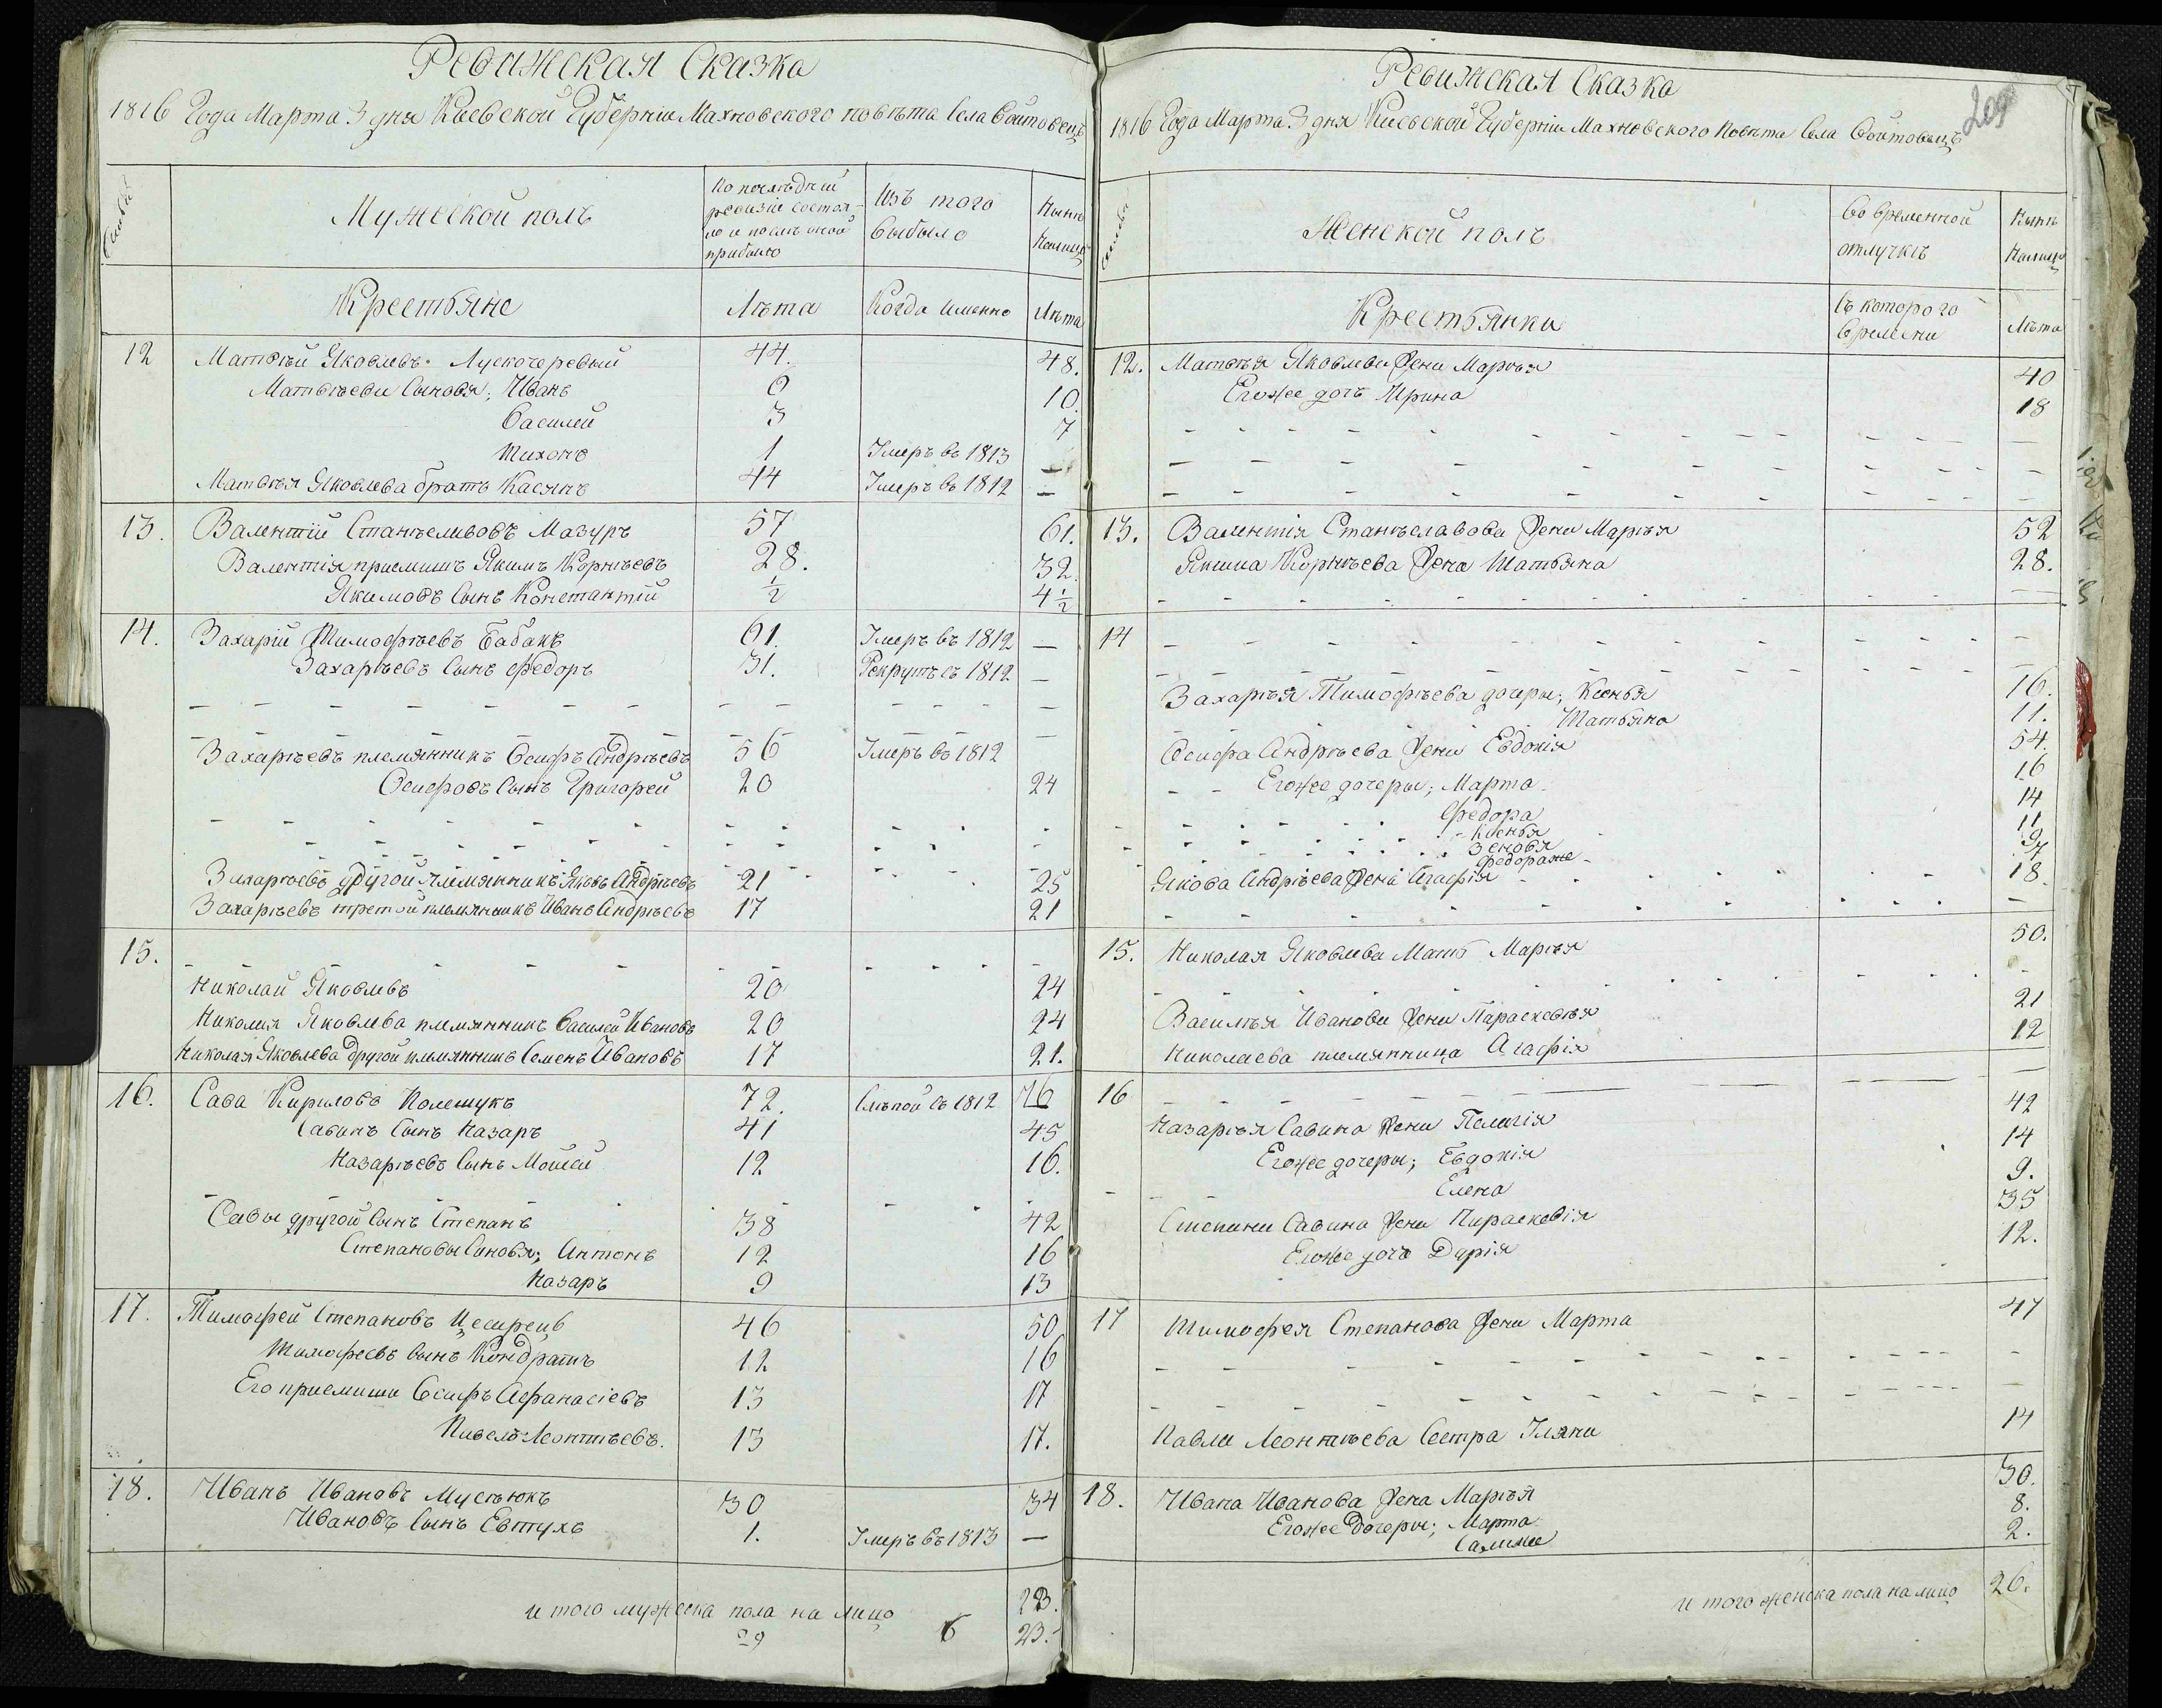 Ревижская Сказка
1816 Года Марта 3 дня Киевской Губерніи Махновского повѣта Села Войтовецъ
Мужеской полъ
По послѣдній ревизіи состояло и послѣ оной прибыло
Изъ того выбыло
Нынѣ налицо
Крестьяне
Лѣта
Когда именно
Лѣта
12 Матвѣй Яковлевъ Лускочеревый 44. 48.
Матвѣеви Сыновя; Иванъ 6 10.
Василей 3 7
Тихонъ 1 Умеръ въ 1813 —
Матвѣя Яковлева братъ Касянъ 44 Умеръ въ 1812 —
13. Валентій Станѣславовъ Мазуръ 57 61.
Валентія приемишъ Якимъ Корнѣевъ 28. 32.
Якимовъ Сынъ Константій ½ 4½
14. Захарій Тимофѣевъ Бабакъ 61. Умеръ въ 1812 —
Захарѣевъ Сынъ Федоръ 31. Рекрутъ съ 1812 —
Захарѣевъ племянникъ Осифъ Андрѣевъ 56 Умеръ въ 1812
Осифовъ Сынъ Григорей 20 24
Захарѣевъ другой племянникъ Яковъ Андрѣевъ 21 25
Захарѣевъ третой племянникъ Иванъ Андрѣевъ 17 21
15.
Николай Яковлевъ 20 24
Николая Яковлева племянникъ Василей Ивановъ 20 24
Николая Яковлева другой племянникъ Семенъ Ивановъ 17 21.
16. Сава Кириловъ Полешукъ 72. Слѣпой съ 1812 76
Савинъ Сынъ Назаръ 41 45
Назарѣевъ Сынъ Мойсей 12 16.
Савы другой Сынъ Степанъ 38 42
Степановы Сыновя; Антонъ 12 16
Назаръ 9 13
17. Тимофей Степановъ 46 50
Тимофеевъ Сынъ Кондратъ 12 16
Его приемиши Осифъ Афанасіевъ 13 17
Павелъ Леонтѣевъ. 13 17.
18. Иванъ Ивановъ Мусѣюкъ 30 34
Ивановъ Сынъ Евтухъ 1. Умеръ въ 1813 —
и того мужеска пола на лицо 23.
29 6 23.
Ревижская Сказка
209
1816 Года Марта 3 дня Киевской Губерніи Махновского Повѣта Села Войтовецъ
Женской полъ
Во временной отлучкѣ
Нынѣ налицо
Крестьянки
Съ которого времени
Лѣта
12. Матвѣя Яковлева Жена Марѣя 40
Егоже дочь Ирина 18
13. Валентія Станѣславова Жена Марѣя 52
Якима Корнѣева Жена Татьяна 28.
14
Захарѣя Тимофѣева дочеры; Ксенья 16.
Татьяна 11.
Осифа Андрѣева Жена Евдокія 54.
Егоже дочеры; Марта 16
Федора 14
Ксенья 11
Зеновя 9
Федораже 7
Якова Андрѣева Жена Агафія 18.
15. Николая Яковлева Мать Марѣя 50.
Василѣя Иванова Жена Параскевѣя 21
Николаева племянница Агафія 12
16
Назарѣя Савина Жена Пелагія 42
Егоже дочеры; Евдокія 14
Елена 9.
Степана Савина Жена Параскевія 35
Егоже дочь Дарія 12.
17 Тимофея Степанова Жена Марта 47
Павла Леонтѣева Сестра Уляна 14
18. Ивана Иванова Жена Марѣя 30.
Егоже дочеры; Марта 8.
2.
и того женска пола на лицо 26.